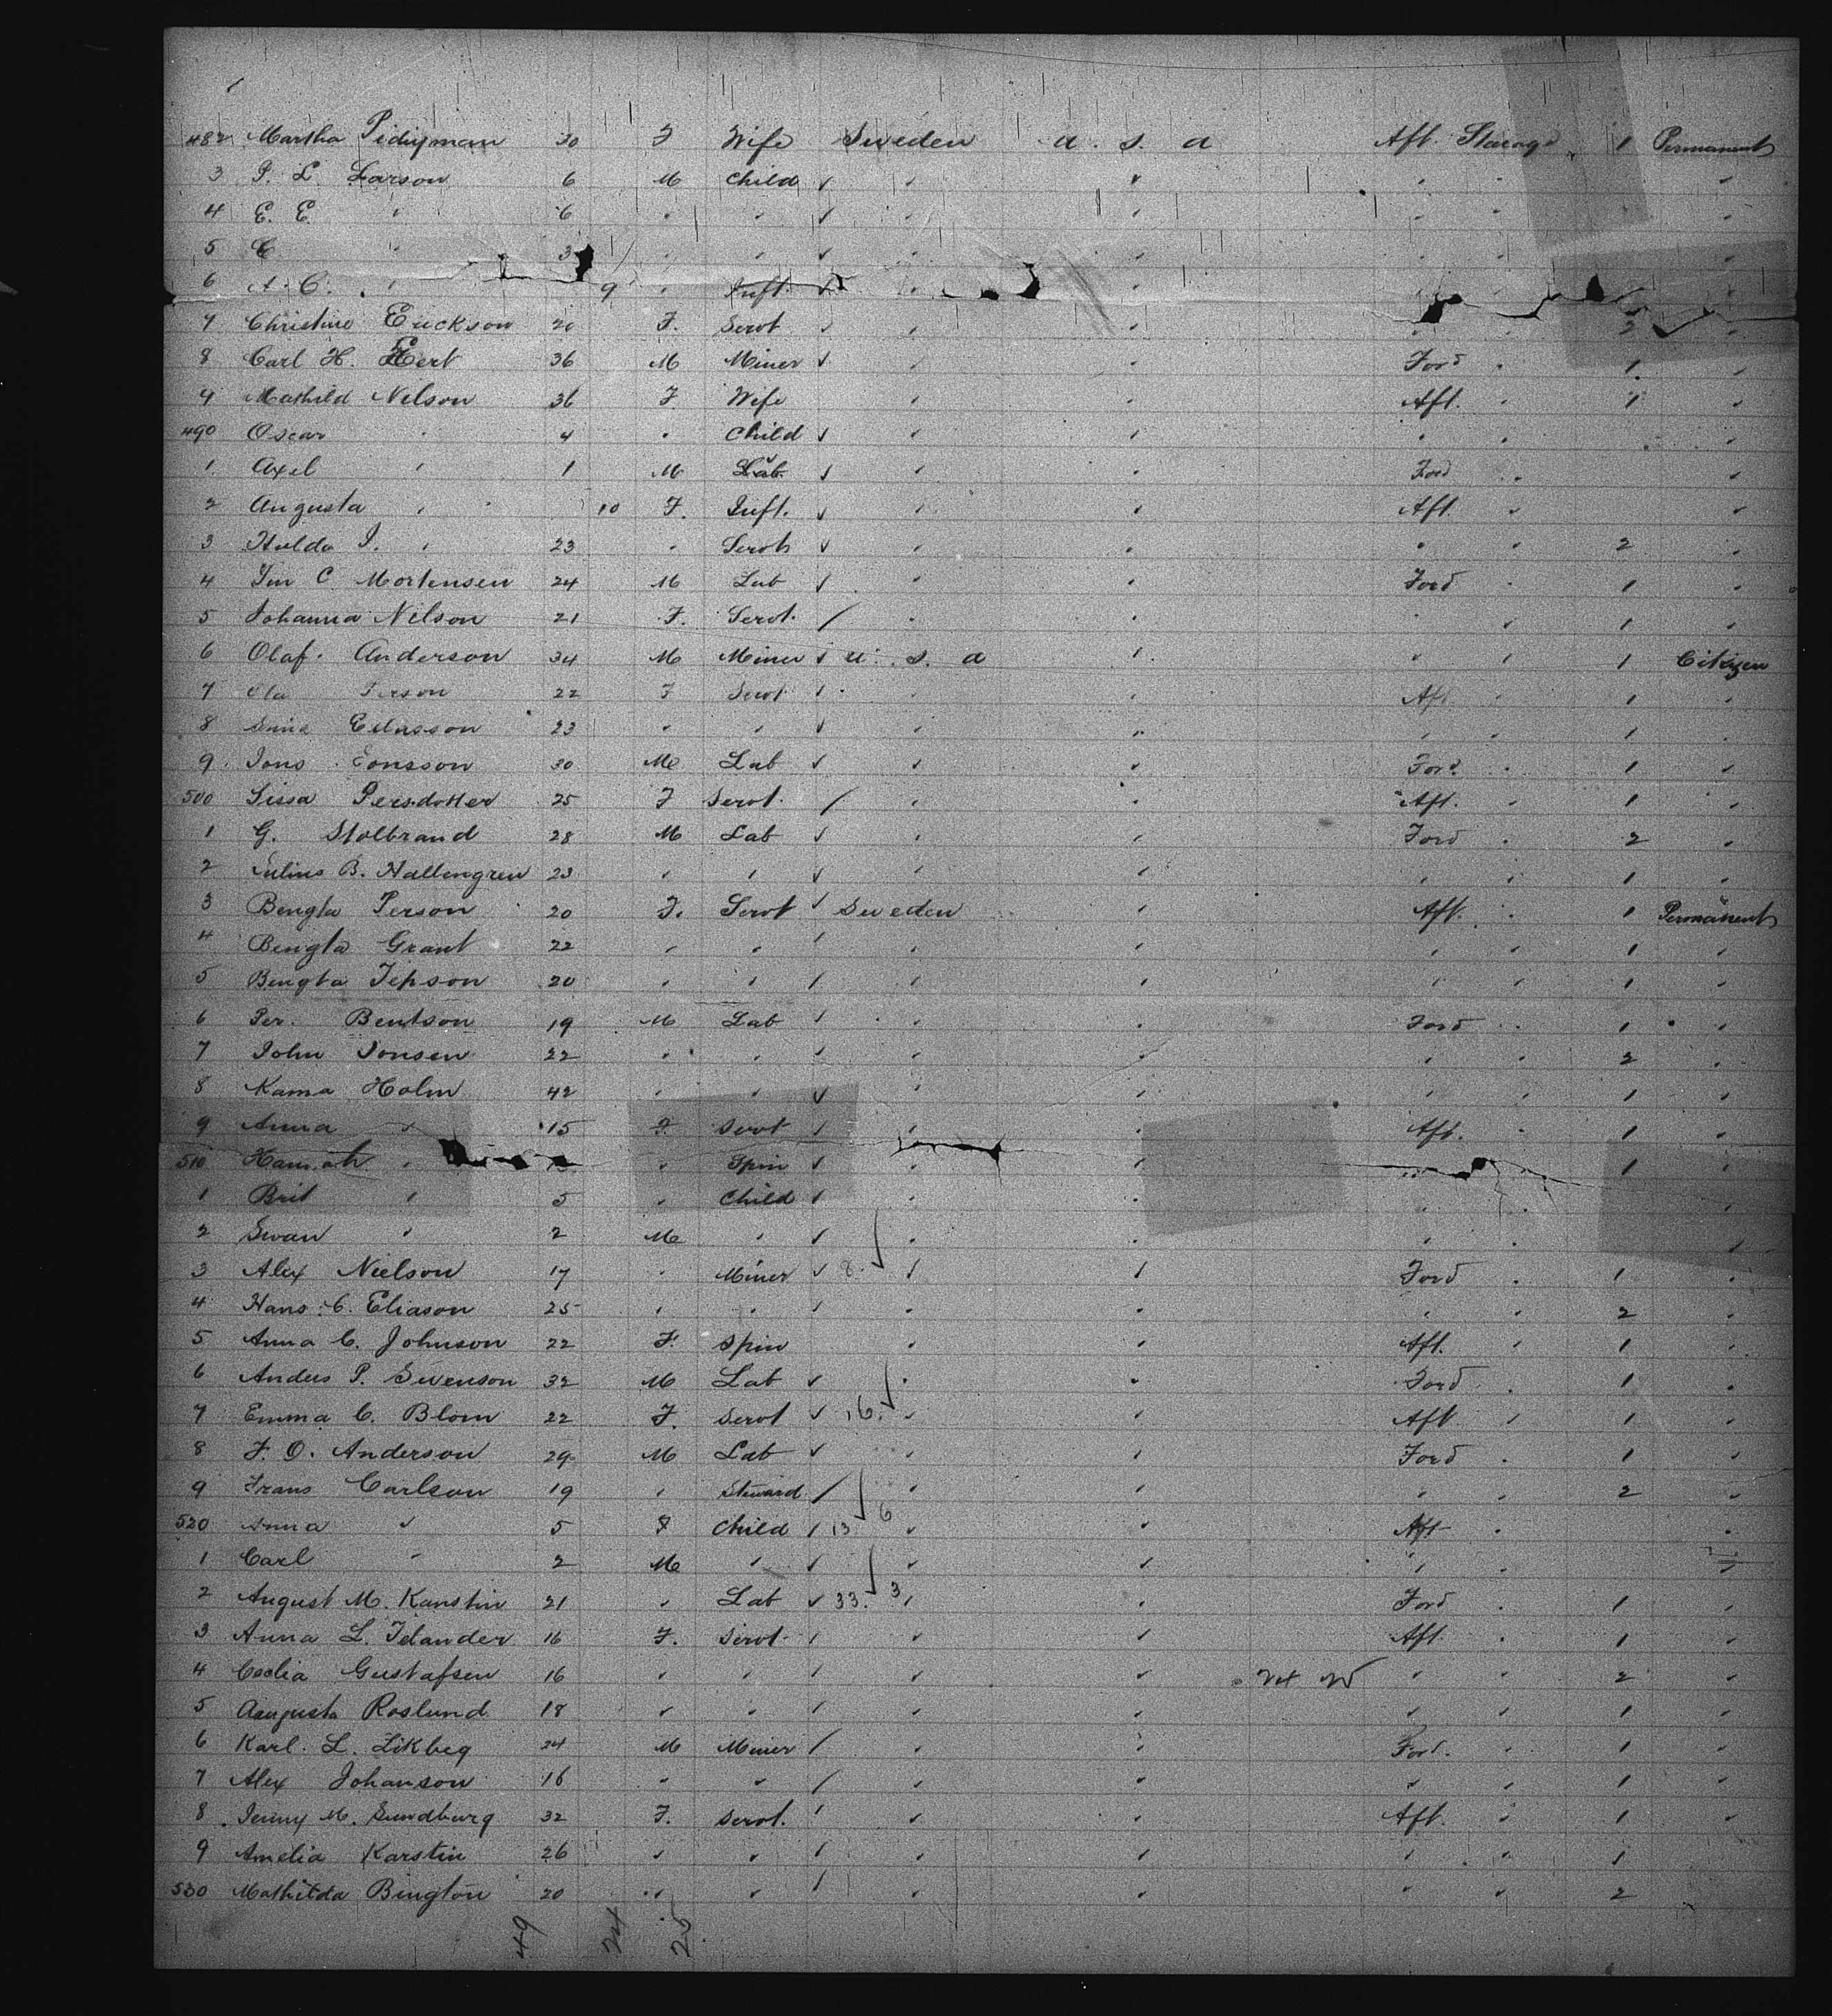 482 Martha Pidigman 30 F Wife Sweden U. S. A Aft. Stearage 1 Permanent
3 P. L. Larson 6 M Child ✓ " " " "
4 E. E. " 6 " " ✓ " " " "
5 C " 3 " " ✓ " " " "
6 A. C. " 9 " Inft. ✓ " " "
7 Christine Erickson 20 F. Servt ✓ " " " " 2 "
8 Carl H. Ekert 36 M Miner ✓ " " Ford " 1 "
9 Mathild Nelson 36 F. Wife " " Aft. " 1 "
490 Oscar " 4 " Child ✓ " " " " "
1 Axel " 1 M Lab ✓ " " Ford " "
2 Augusta " 10 F. Inft. ✓ " " Aft. " "
3 Hulda I. " 23 " Servt ✓ " " " " 2 "
4 Jin C Mortensen 24 M Lab ✓ " " Ford " 1 "
5 Johanna Nilson 21 F. Servt. / " " " " 1 "
6 Olaf. Anderson 34 M Miner ✓ U. S. A " " " 1 Citizen
7 Ola Person 22 F Servt ✓ " " Aft " 1 "
8 Eliasson 23 " " ✓ " " " " 1 "
9 Jons Jonsson 30 M Lab ✓ " " Ford " 1 "
500 Sissa Persdotter 25 F Servt. / " " Aft. " 1 "
1 G. Stolbrand 28 M Lab ✓ " " Ford " 2 "
2 Julius B. Hallengren 23 " " ✓ " " " " 1 "
3 Bengta Person 20 F. Servt ✓ Sweden " Aft. " 1 Permanent
4 Bengta Grant 22 " " / " " " " 1 "
5 Bengta Jepson 20 " " / " " " " 1 "
6 Per. Bentson 19 M Lab / " " Ford " 1 "
7 John Jonsen 22 " " ✓ " " " " 2 "
8 Kama Holm 42 " " ✓ " " " " 1 "
9 Anna " 15 F. Servt / " " Aft. " 1 "
510 Hannah " " Spin ✓ " " " 1 "
1 Brit " 5 " Child ✓ " " " " "
2 Swan " 2 M " ✓ " " " " "
3 Alex Nielson 17 " Miner ✓ 8. " " Ford " 1 "
4 Hans C. Eliason 25 " " / " " " " 2 "
5 Anna C. Johnson 22 F. Spin " " Aft. " 1 "
6 Anders P. Swenson 32 M Lab ✓ " " Ford " 1 "
7 Emma C. Blom 22 F. Servt ✓ 16. " " Aft " 1 "
8 F. O. Anderson 29 M Lab ✓ " " Ford " 1 "
9 Frans Carlson 19 " Steward / " " " " 2 "
520 Anna " 5 F Child / 13 6 " " Aft " "
1 Carl " 2 M " ✓ " " " " "
2 August M. Kanstin 21 " Lab ✓ 33. 3 " " Ford " 1 "
3 Anna L. Telander 16 F. Servt / " " Aft. " 1 "
4 Cecelia Gustafsen 16 " " / " " " " 2 "
5 Augusta Roslund 18 " " / " " " " 1 "
6 Karl. L. Likbeg 24 M Miner / " " Ford. " 1 "
7 Alex Johanson 16 " " / " " " " 1 "
8 Jenny M. Sundburg 32 F. Servt. / " " Aft. " 1 "
9 Amelia Karstin 26 " " / " " " " 1
530 Mathilda Bington 20 " " / " " " " 2
49 24 25